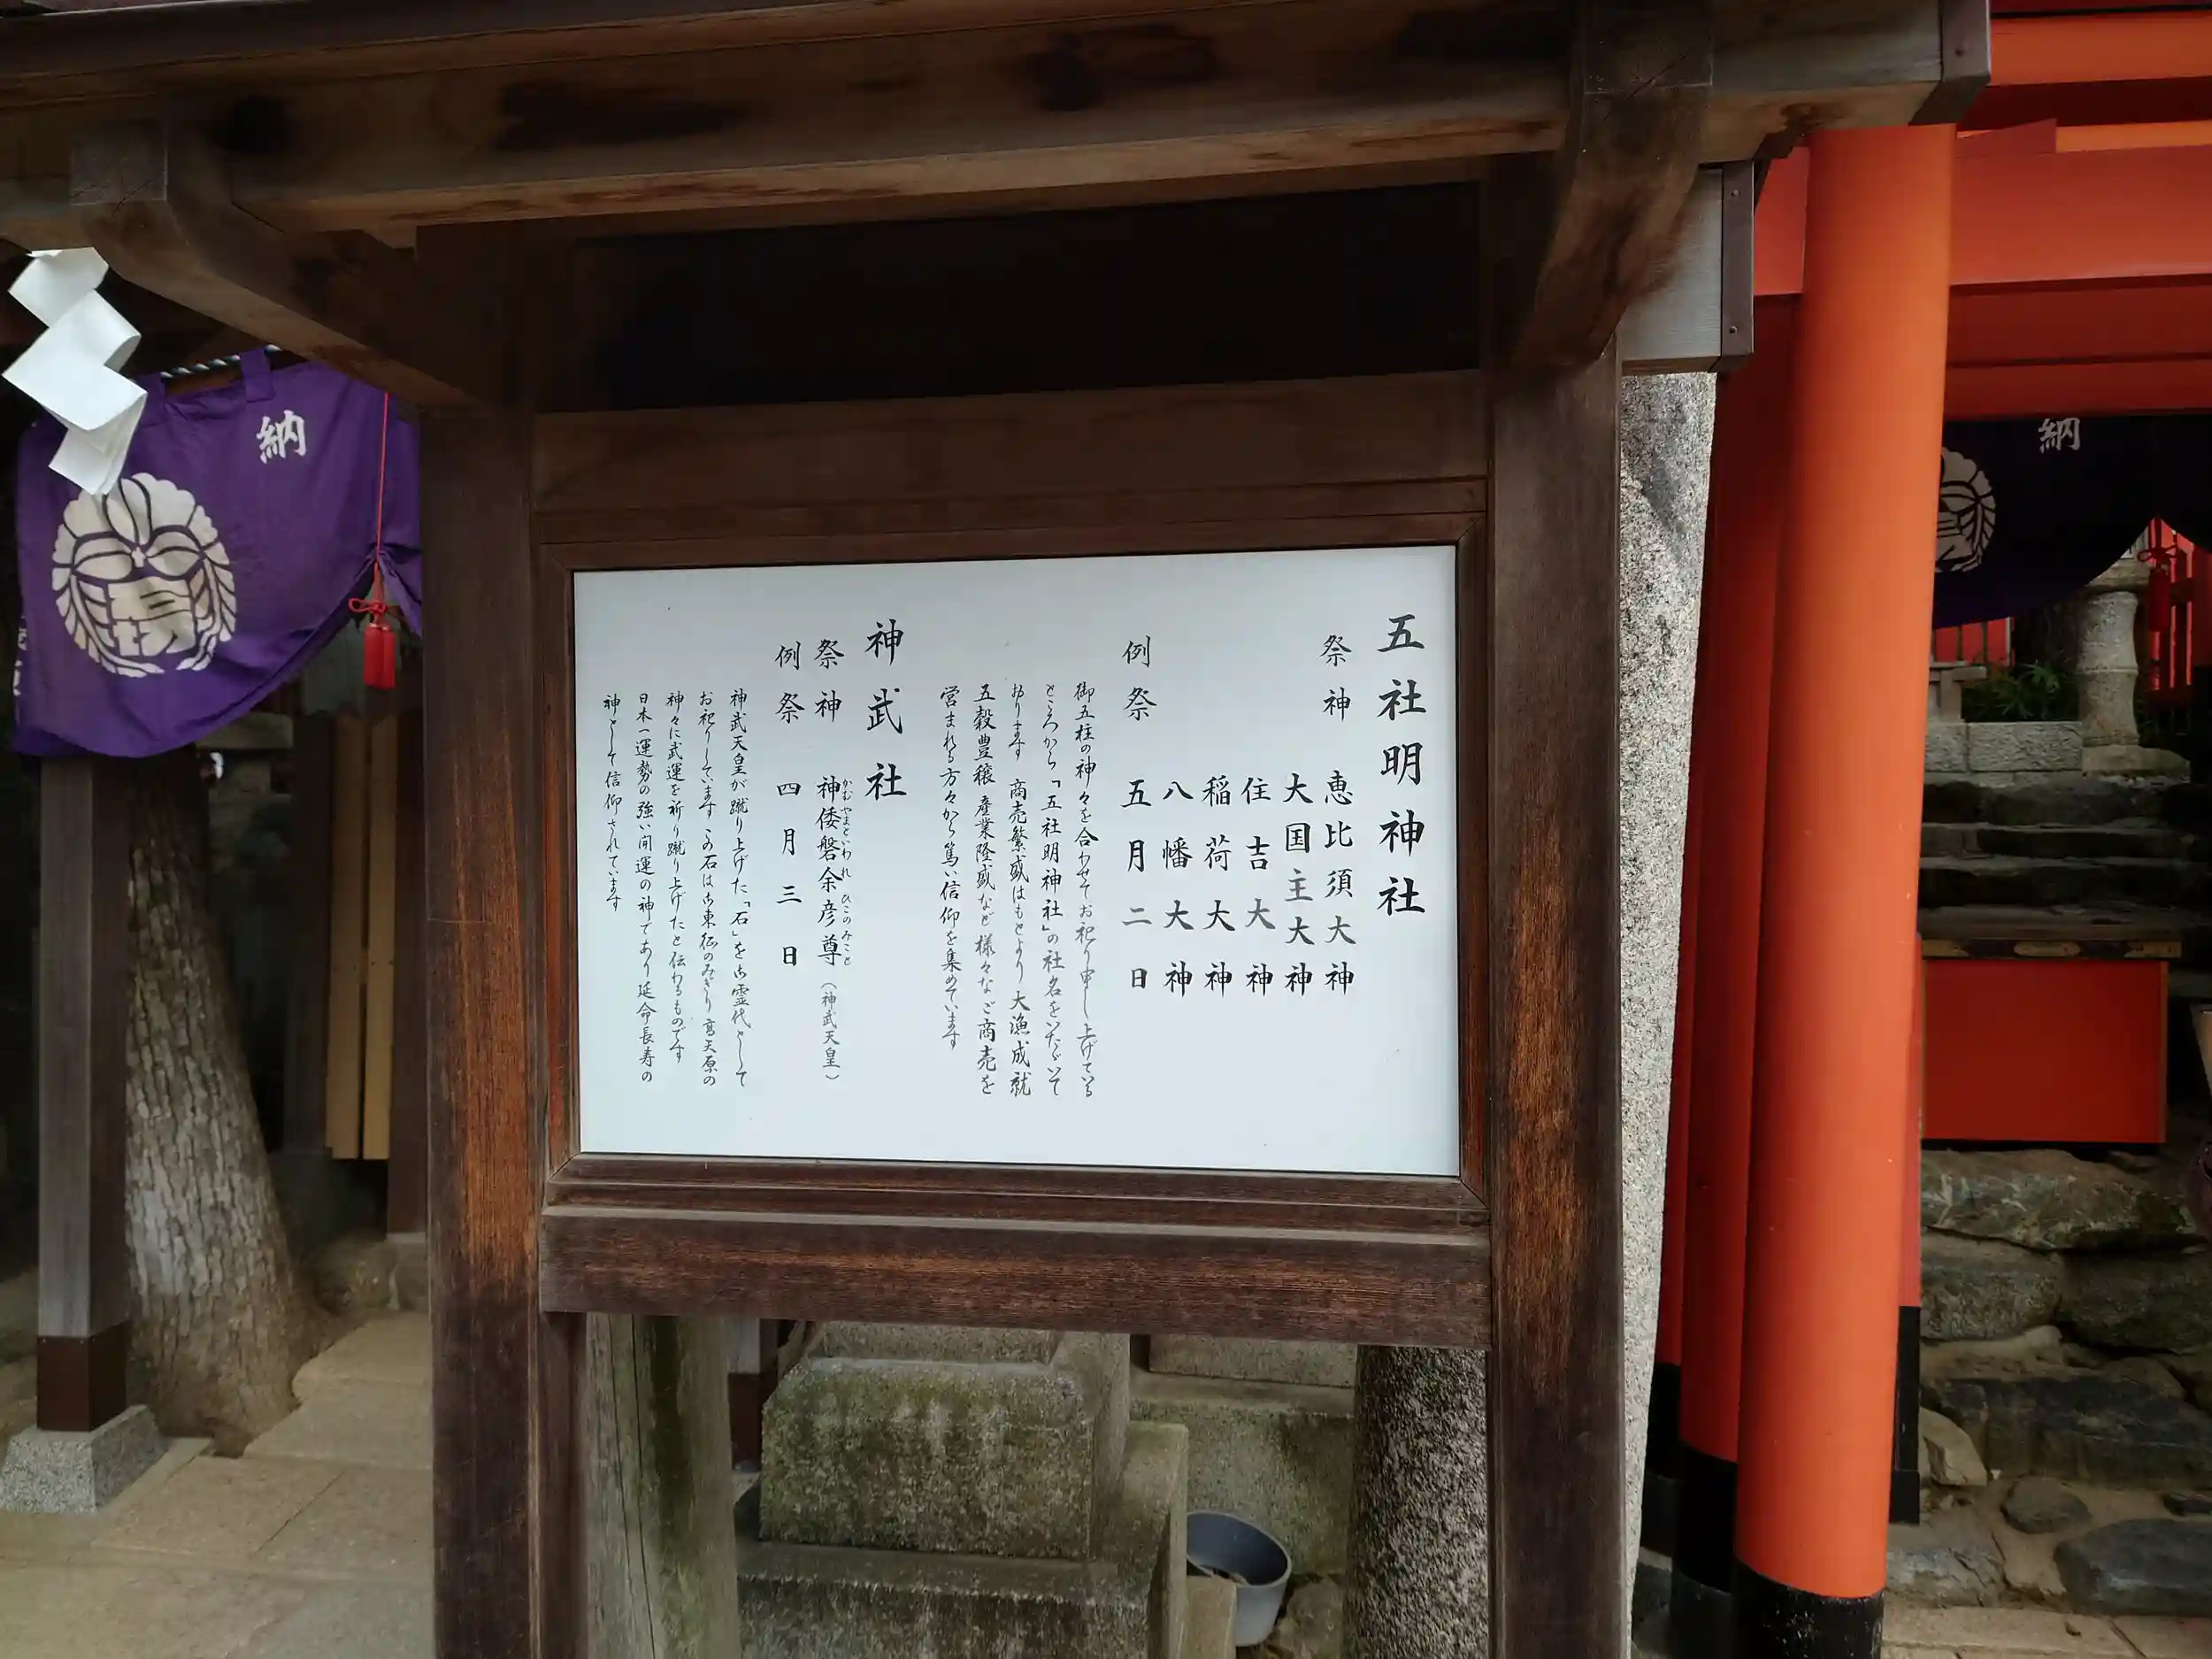 五社明神社
祭神 恵比須大神
大国主大神
住吉大神
稲荷大神
八幡大神
例祭 五月二日
御五柱の神々を合わせてお祀り申し上げている
ところから「五社明神社」の社名をいただいて
おります 商売繁盛はもとより大漁成就
五穀豊穣 産業隆盛など様々なご商売を
営まれる方々から篤い信仰を集めています
神武社
祭神 神倭磐余彦尊(神武天皇)
かむやまといわれ ひこのみこと
例祭 四月三日
神武天皇が蹴り上げた「石」を御霊代として
お祀りしています この石は御東征のみぎり高天原の
神々に武運を祈り蹴り上げたと伝わるものです
日本一運勢の強い開運の神であり延命長寿の
神として信仰されています
納
納